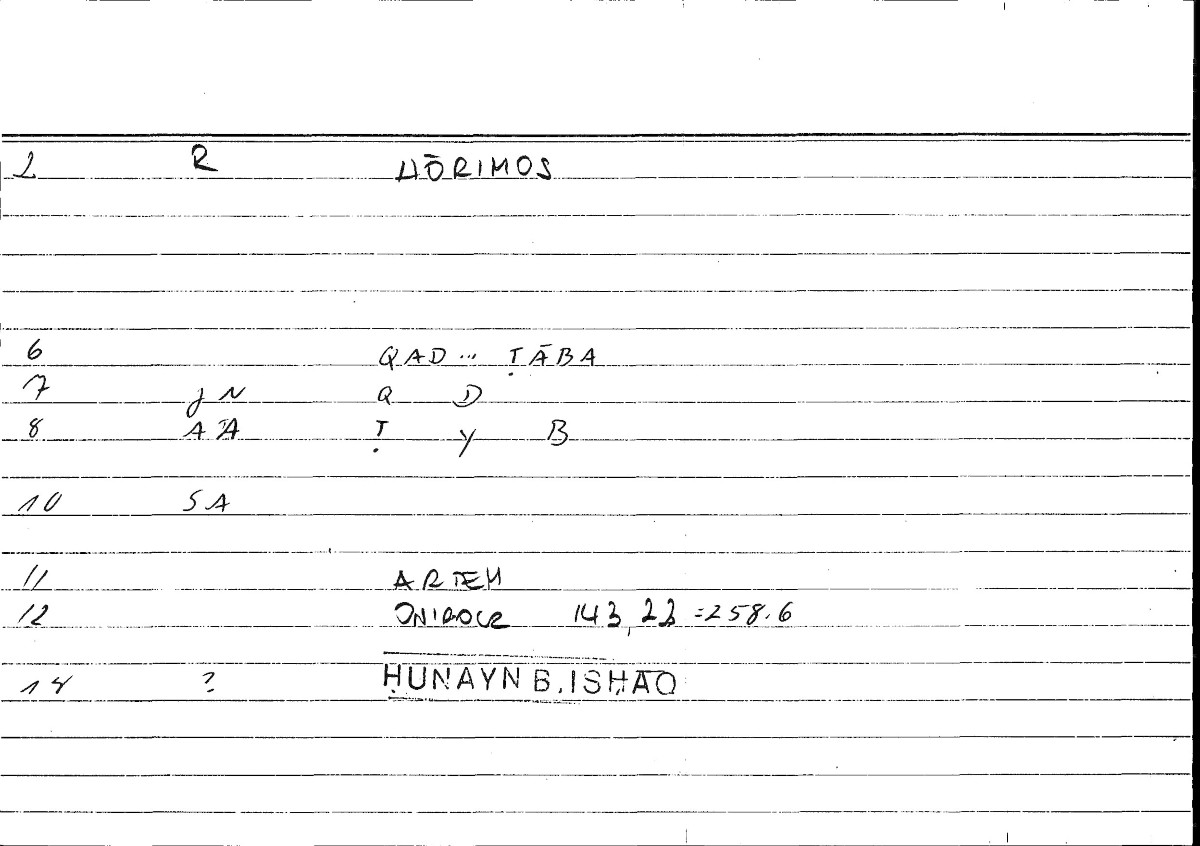 2 R HŌRIMOS
6 QAD ... ṬĀBA
7 JN Q D
8 AĀ Ṭ Y B
10 SA
11 ARTEM
12 ONIROCR 143,22 = 258.6
14 ? ḤUNAYN B. ISḤĀQ